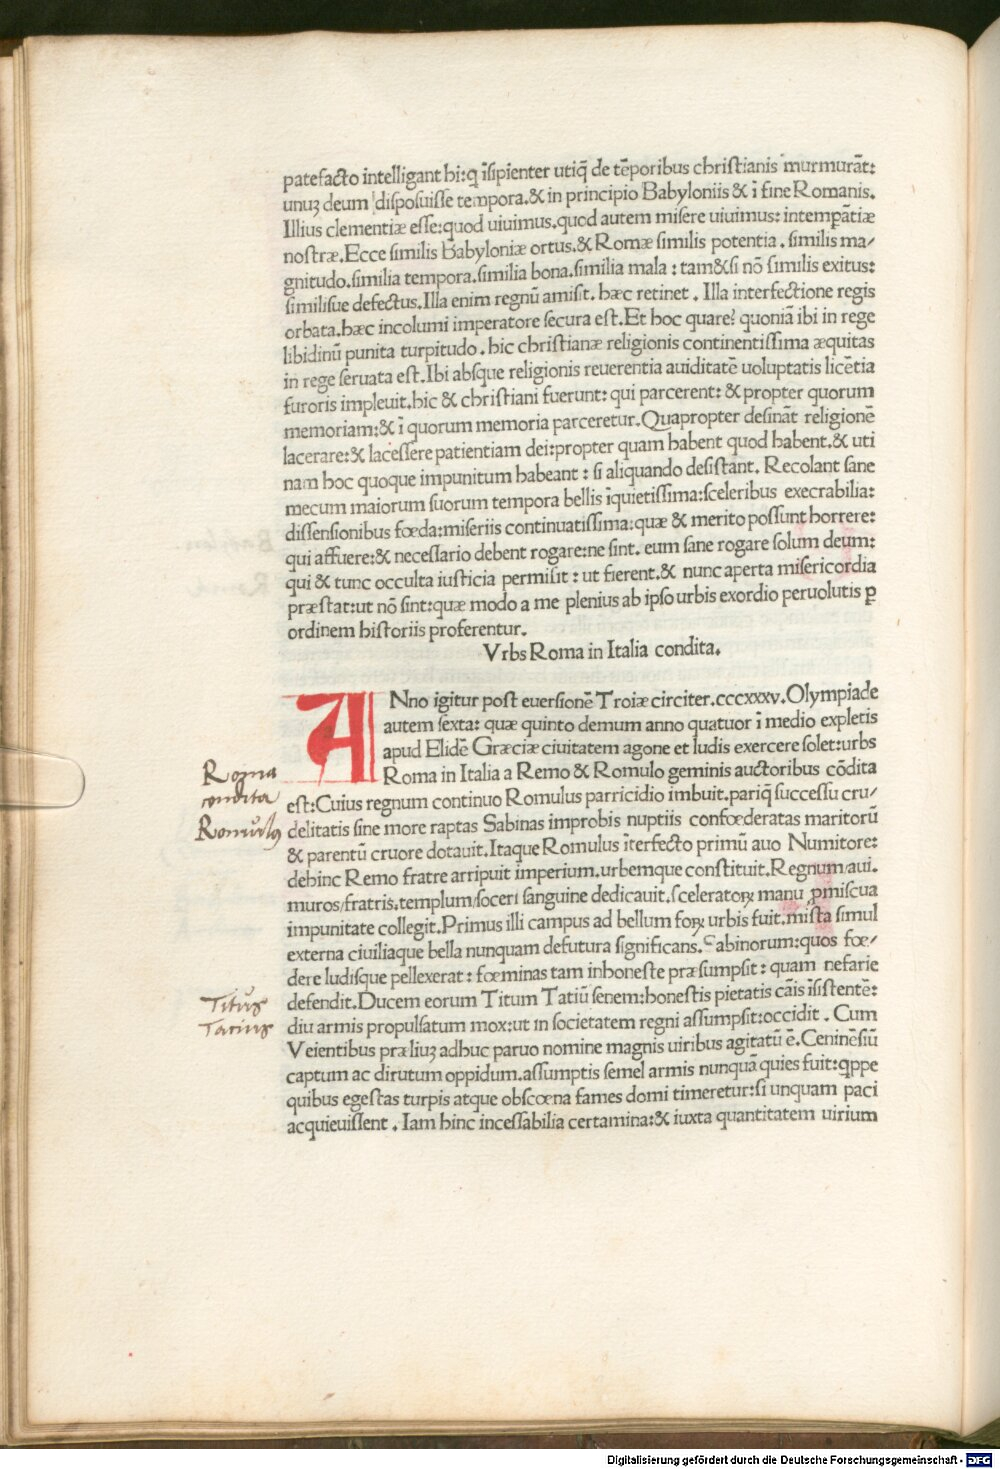 patefacto intelligant hi:q̃ ĩsipienter utiq̃ de tẽporibus christianis murmurãt:
unuꝫ deum disposuisse tempora.& in principio Babyloniis & ĩ fine Romanis.
Illius clementiæ esse:quod uiuimus.quod autem misere uiuimus: intemꝑãtiæ
nostræ.Ecce similis Babyloniæ ortus.& Romæ similis potentia . similis ma/
gnitudo.similia tempora.similia bona.similia mala : tam&si nõ similis exitus:
similisue defectus.Illa enim regnũ amisit. hæc retinet . Illa interfectione regis
orbata.hæc incolumi imperatore secura est.Et hoc quare? quoniã ibi in rege
libidinũ punita turpitudo . hic christianæ religionis continentissima æquitas
in rege seruata est.Ibi absque religionis reuerentia auiditatẽ uoluptatis licẽtia
furoris impleuit.hic & christiani fuerunt: qui parcerent: & propter quorum
memoriam:& ĩ quorum memoria parceretur.Quapropter desinãt religionẽ
lacerare:& lacessere patientiam dei:propter quam habent quod habent.& uti
nam hoc quoque impunitum habeant : si aliquando desistant. Recolant sane
mecum maiorum suorum tempora bellis ĩquietissima:sceleribus execrabilia:
dissensionibus fœda:miseriis continuatissima:quæ & merito possunt horrere:
qui affuere:& necessario debent rogare:ne sint. eum sane rogare solum deum:
qui & tunc occulta iusticia permisit : ut fierent.& nunc aperta misericordia
præstat:ut nõ sint:quæ modo a me plenius ab ipso urbis exordio peruolutis ꝑ
ordinem historiis proferentur.
Vrbs Roma in Italia condita.
ANno igitur post euersionẽ Troiæ circiter.cccxxxv.Olympiade
autem sexta: quæ quinto demum anno quatuor ĩ medio expletis
apud Elidẽ Græciæ ciuitatem agone et ludis exercere solet:urbs
Roma in Italia a Remo & Romulo geminis auctoribus cõdita
Roma
condita
Romulus
est:Cuius regnum continuo Romulus parricidio imbuit.pariq̃ successu cru/
delitatis sine more raptas Sabinas improbis nuptiis confœderatas maritorũ
& parentũ cruore dotauit.Itaque Romulus ĩterfecto primũ auo Numitore:
dehinc Remo fratre arripuit imperium.urbemque constituit.Regnum/aui.
muros/fratris.templum/soceri sanguine dedicauit.sceleratoꝝ manu ꝓmiscua
impunitate collegit.Primus illi campus ad bellum foꝝ urbis fuit.mista simul
externa ciuiliaque bella nunquam defutura significans.Sabinorum:quos fœ/
dere ludisque pellexerat : fœminas tam inhoneste præsumpsit : quam nefarie
defendit.Ducem eorum Titum Tatiũ senem:honestis pietatis cãis ĩsistentẽ:
Titus
Tacius
diu armis propulsatum mox:ut in societatem regni assumpsit:occidit . Cum
Veientibus præliuꝫ adhuc paruo nomine magnis uiribus agitatũ ẽ.Ceninẽsiũ
captum ac dirutum oppidum.assumptis semel armis nunquã quies fuit:q̃ppe
quibus egestas turpis atque obscœna fames domi timeretur:si unquam paci
acquieuissent . Iam hinc incessabilia certamina:& iuxta quantitatem uirium
Digitalisierung gefördert durch die Deutsche Forschungsgemeinschaft - DFG